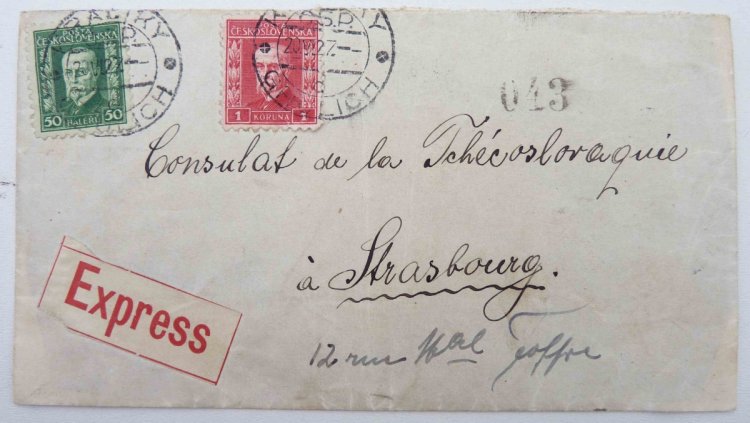 POŠTA
ČESKOSLOVENSKÁ
50 50
ČESKOSLOVENSKÁ
1 KORUNA 1
20.VI.27
043
Consulat de la Tchécoslovaquie
à Strasbourg.
Express
12 rue Mal Joffre